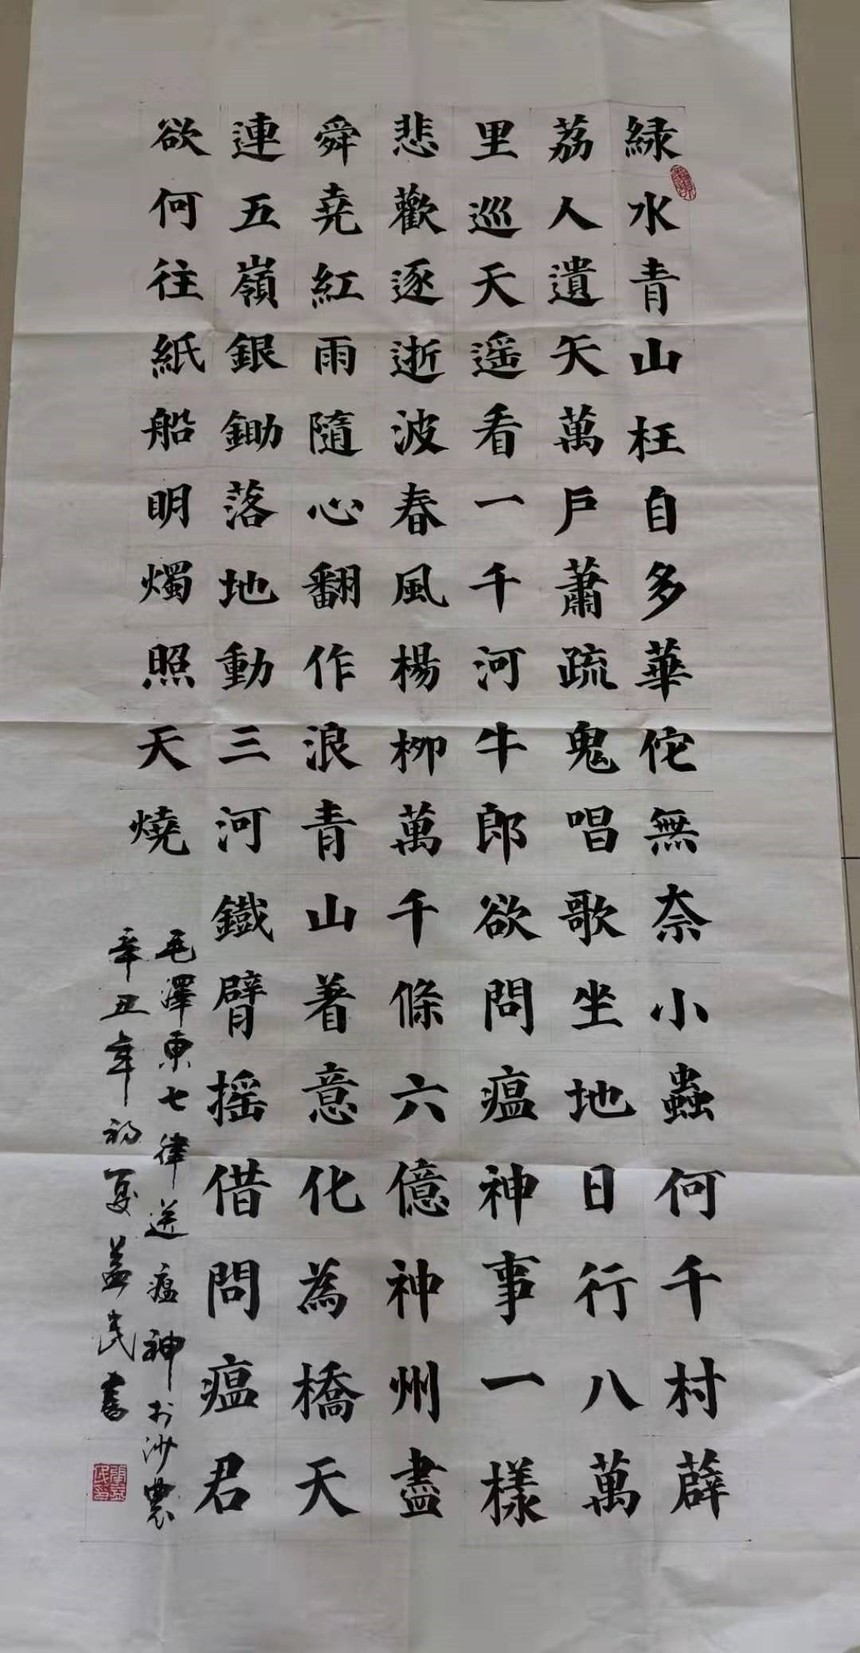 緑水青山枉自多華佗無奈小蟲何千村薜
荔人遺矢萬戶蕭疏鬼唱歌坐地日行八萬
里巡天遥看一千河牛郎欲問瘟神事一樣
悲歡逐逝波春風楊柳萬千條六億神州盡
舜堯紅雨隨心翻作浪青山着意化為橋天
連五嶺銀鋤落地動三河鐵臂摇借問瘟君
欲何往紙船明燭照天燒
毛澤東七律送瘟神於沙農
辛丑年初夏益民書